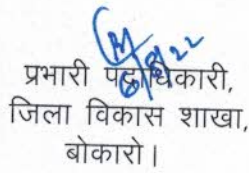 प्रभारी पदाधिकारी,
जिला विकास शाखा,
बोकारो।